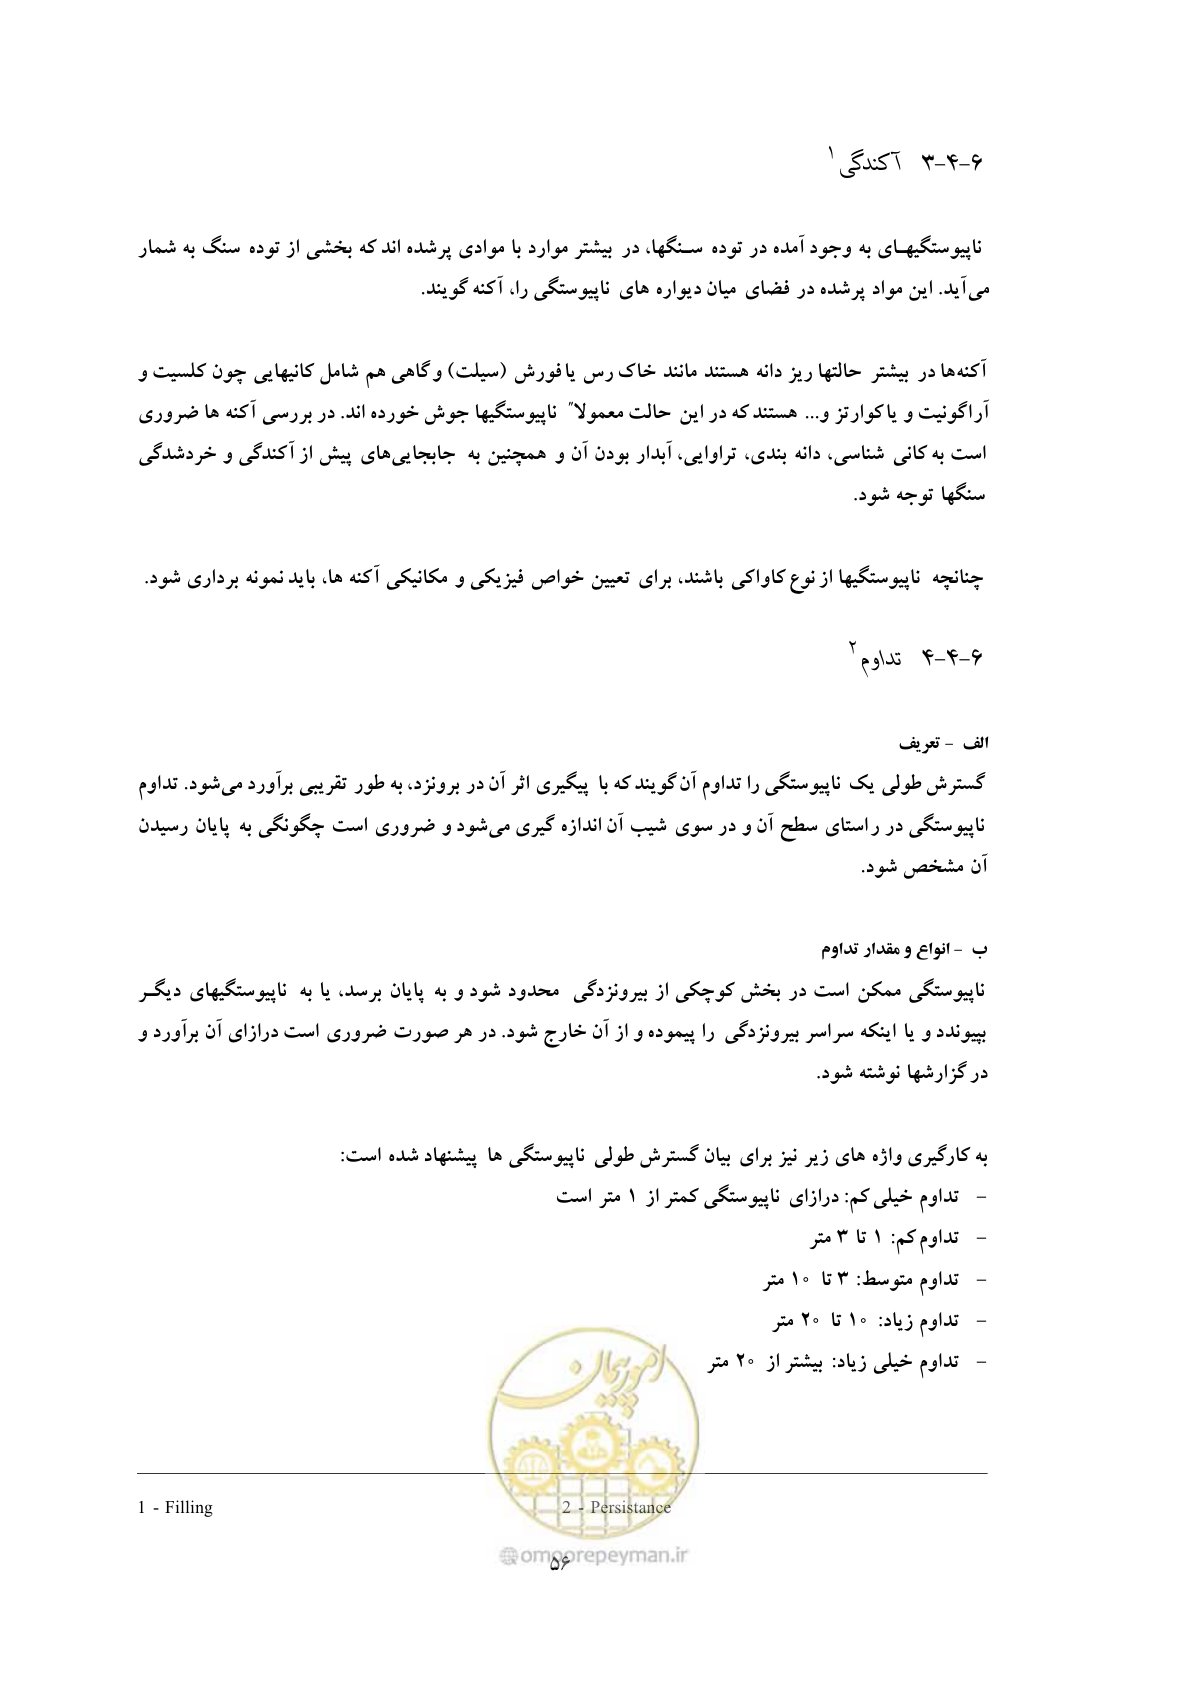 ۶-۴-۳ آکندگی ۱
ناپیوستگیهـای به وجود آمده در توده سـنگها، در بیشتر موارد با موادی پرشده اند که بخشی از توده سنگ به شمار
می‌آید. این مواد پرشده در فضای میان دیواره های ناپیوستگی را، آکنه گویند.
آکنه‌ها در بیشتر حالتها ریز دانه هستند مانند خاک رس یا فورش (سیلت) و گاهی هم شامل کانیهایی چون کلسیت و
آراگونیت و یا کوارتز و... هستند که در این حالت معمولا" ناپیوستگیها جوش خورده اند. در بررسی آکنه ها ضروری
است به کانی شناسی، دانه بندی، تراوایی، آبدار بودن آن و همچنین به جابجایی‌های پیش از آکندگی و خردشدگی
سنگها توجه شود.
چنانچه ناپیوستگیها از نوع کاواکی باشند، برای تعیین خواص فیزیکی و مکانیکی آکنه ها، باید نمونه برداری شود.
۶-۴-۴ تداوم ۲
الف - تعریف
گسترش طولی یک ناپیوستگی را تداوم آن گویند که با پیگیری اثر آن در برونزد، به طور تقریبی برآورد می‌شود. تداوم
ناپیوستگی در راستای سطح آن و در سوی شیب آن اندازه گیری می‌شود و ضروری است چگونگی به پایان رسیدن
آن مشخص شود.
ب - انواع و مقدار تداوم
ناپیوستگی ممکن است در بخش کوچکی از بیرونزدگی محدود شود و به پایان برسد، یا به ناپیوستگیهای دیگـر
بپیوندد و یا اینکه سراسر بیرونزدگی را پیموده و از آن خارج شود. در هر صورت ضروری است درازای آن برآورد و
در گزارشها نوشته شود.
به کارگیری واژه های زیر نیز برای بیان گسترش طولی ناپیوستگی ها پیشنهاد شده است:
- تداوم خیلی کم: درازای ناپیوستگی کمتر از ۱ متر است
- تداوم کم: ۱ تا ۳ متر
- تداوم متوسط: ۳ تا ۱۰ متر
- تداوم زیاد: ۱۰ تا ۲۰ متر
- تداوم خیلی زیاد: بیشتر از ۲۰ متر
امور پیمان
1 - Filling 2 - Persistance
@omoorepeyman.ir
۵۶